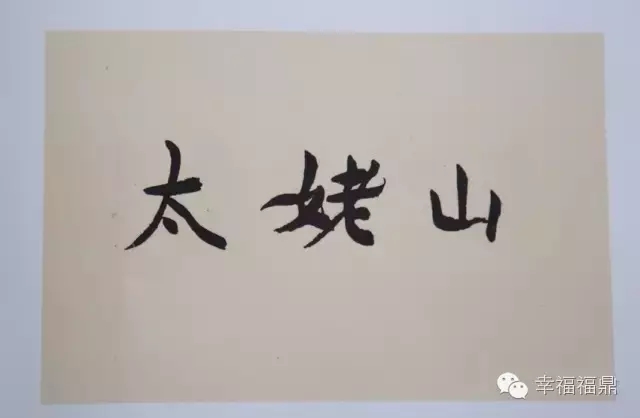 太姥山
幸福福鼎